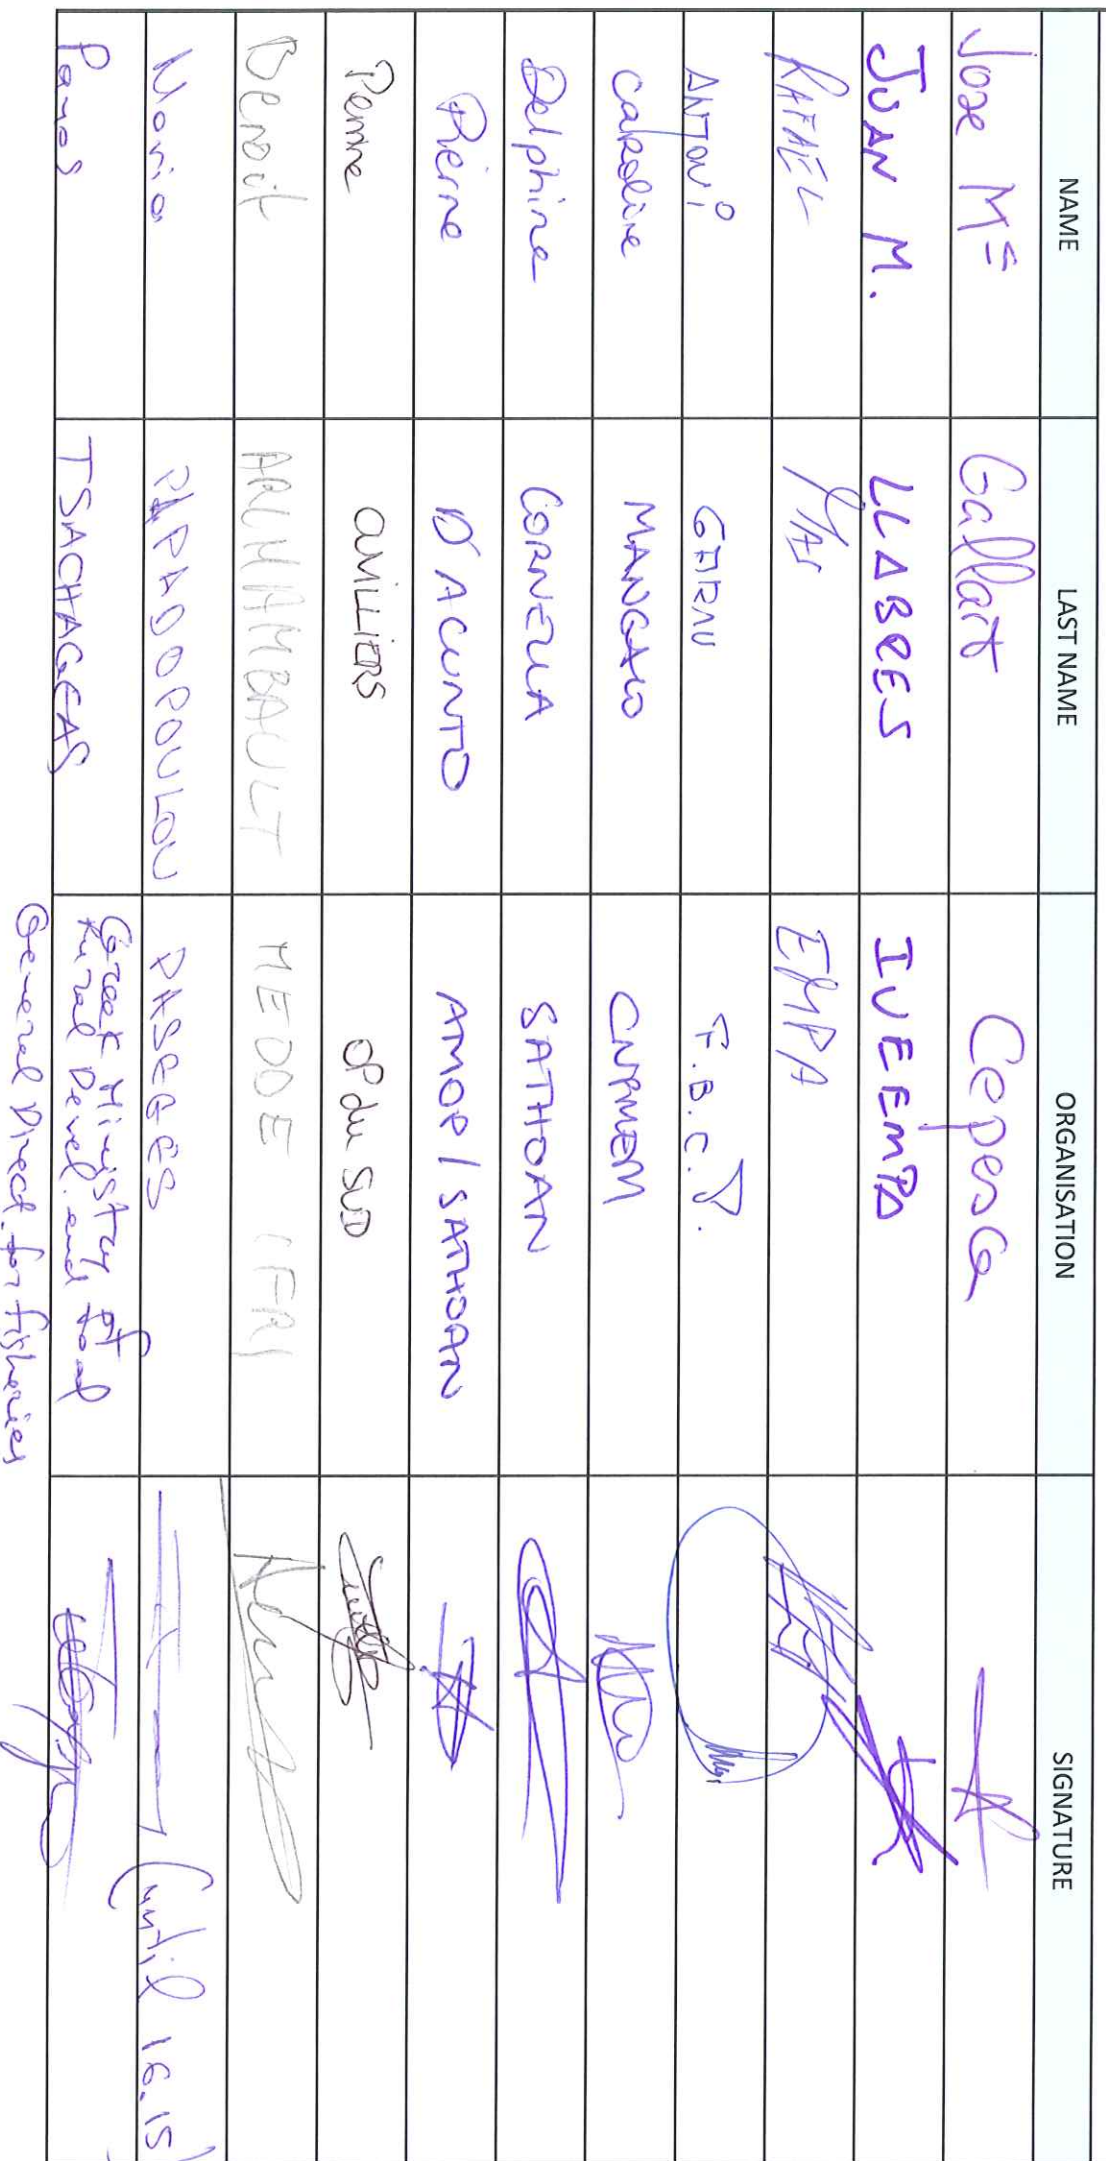 NAME LAST NAME ORGANISATION SIGNATURE
Jose Mª Gallart Cepesca
JUAN M. LLABRES IVEEMPA
RAFAEL MAS EMPA
ANTONI GARAU F.B.C.P.
Caroline MANGALO CNPMEM
Delphine CORNELLA SATHOAN
Pierre D'ACUNTO AMOP / SATHOAN
Perrine CUVILLIERS OP du SUD
Benoit ARCHAMBAULT MEDDE (FR)
Maria PAPADOPOULOU PASEGES (until 16.15)
Panos TSACHAGEAS Greek Ministry of
Rural Devel. and Food
General Direct. for fisheries